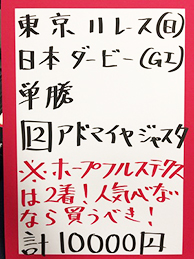 東京11レース(日)
日本ダービー(GI)
単勝
12アドマイヤジャスタ
※ホープフルステークス
は2着！人気べない
なら買うべき！
計10000円